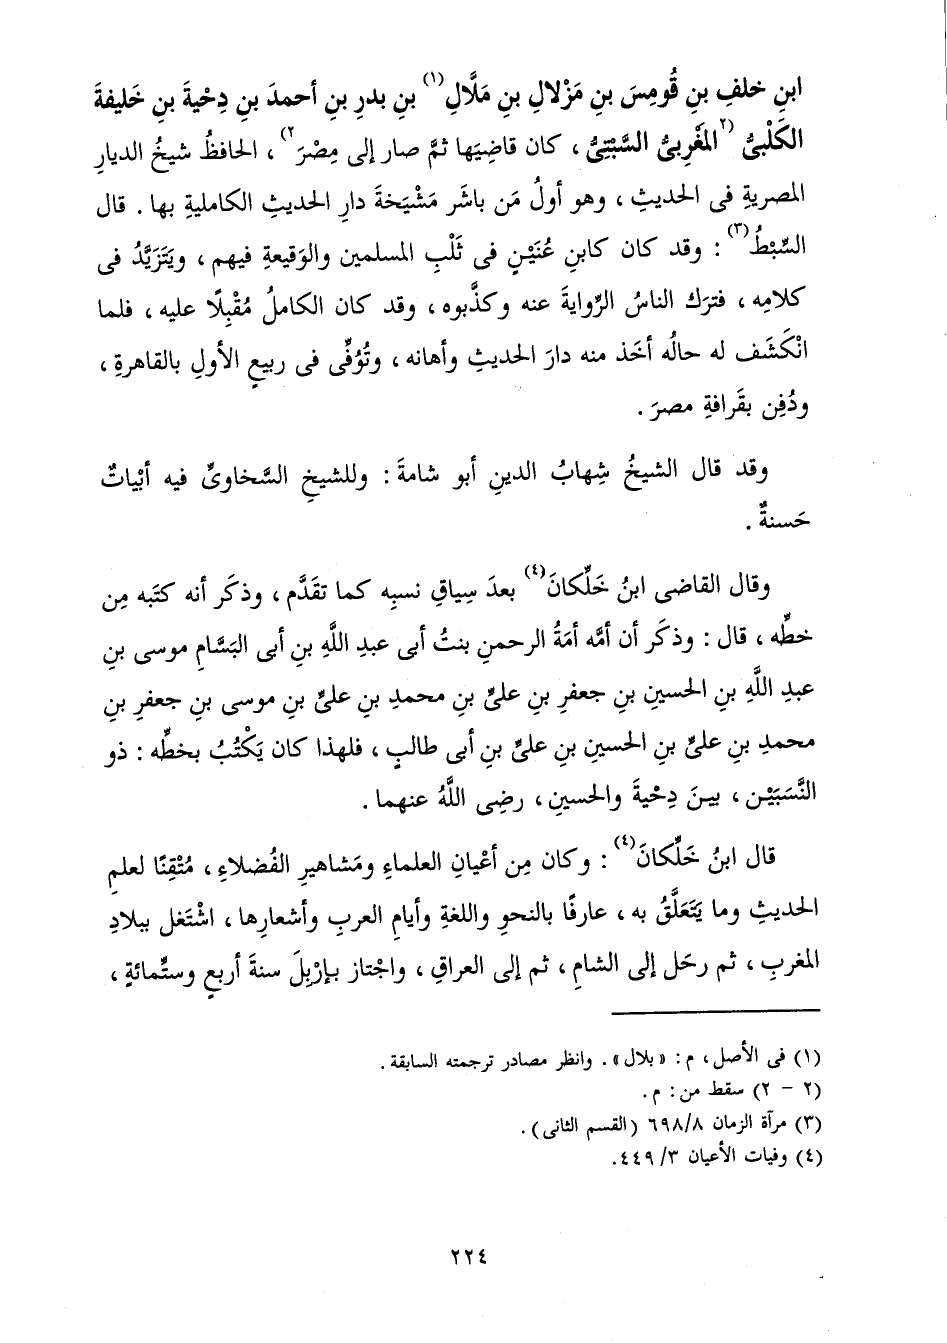 ابنِ خلفِ بنِ قُومِسَ بنِ مَزْلالِ بنِ مَلَّالِ (١) بنِ بدرِ بنِ أحمدَ بنِ دِحْيةَ بنِ خَليفةَ
الكَلْبىُّ (٢ المَغْرِبىُّ السَّبْتِىُّ ، كان قاضِيَها ثمَّ صار إلى مِصْرَ ٢) ، الحافظُ شيخُ الديارِ
المصريةِ فى الحديثِ ، وهو أولُ مَن باشَر مَشْيَخةَ دارِ الحديثِ الكامليةِ بها . قال
السِّبْطُ (٣) : وقد كان كابنِ عُنَيْنٍ فى ثَلْبِ المسلمين والوَقيعةِ فيهم ، ويَتَزَيَّدُ فى
كلامِه ، فترَك الناسُ الرِّوايةَ عنه وكذَّبوه ، وقد كان الكاملُ مُقْبِلًا عليه ، فلما
انْكَشَف له حالُه أخَذ منه دارَ الحديثِ وأهانه ، وتُوُفِّى فى ربيعٍ الأولِ بالقاهرةِ ،
ودُفِن بقَرافةِ مصرَ .
وقد قال الشيخُ شِهابُ الدينِ أبو شامةَ : وللشيخِ السَّخاوىِّ فيه أبْياتٌ
حَسنةٌ .
وقال القاضى ابنُ خَلِّكانَ (٤) بعدَ سِياقِ نسبِه كما تقَدَّم ، وذكَر أنه كتَبه مِن
خطِّه ، قال : وذكَر أن أمَّه أمَةُ الرحمنِ بنتُ أبى عبدِ اللَّهِ بنِ أبى البَسَّامِ موسى بنِ
عبدِ اللَّهِ بنِ الحسينِ بنِ جعفرِ بنِ علىِّ بنِ محمدِ بنِ علىِّ بنِ موسى بنِ جعفرِ بنِ
محمدِ بنِ علىِّ بنِ الحسينِ بنِ علىِّ بنِ أبى طالبٍ ، فلهذا كان يَكْتُبُ بخطِّه : ذو
النَّسَبَيْن ، بينَ دِحْيةَ والحسينِ ، رضِى اللَّهُ عنهما .
قال ابنُ خَلِّكانَ (٤) : وكان مِن أعْيانِ العلماءِ ومَشاهيرِ الفُضلاءِ ، مُتْقِنًا لعلمِ
الحديثِ وما يَتَعَلَّقُ به ، عارفًا بالنحوِ واللغةِ وأيامِ العربِ وأشعارِها ، اشْتَغل ببلادِ
المغربِ ، ثم رحَل إلى الشامِ ، ثم إلى العراقِ ، واجْتاز بإرْبِلَ سنةَ أربعٍ وستِّمائةٍ ،
(١) فى الأصل ، م : « بلال » . وانظر مصادر ترجمته السابقة .
(٢ - ٢) سقط من : م .
(٣) مرآة الزمان ٦٩٨/٨ (القسم الثانى) .
(٤) وفيات الأعيان ٤٤٩/٣ .
٢٢٤